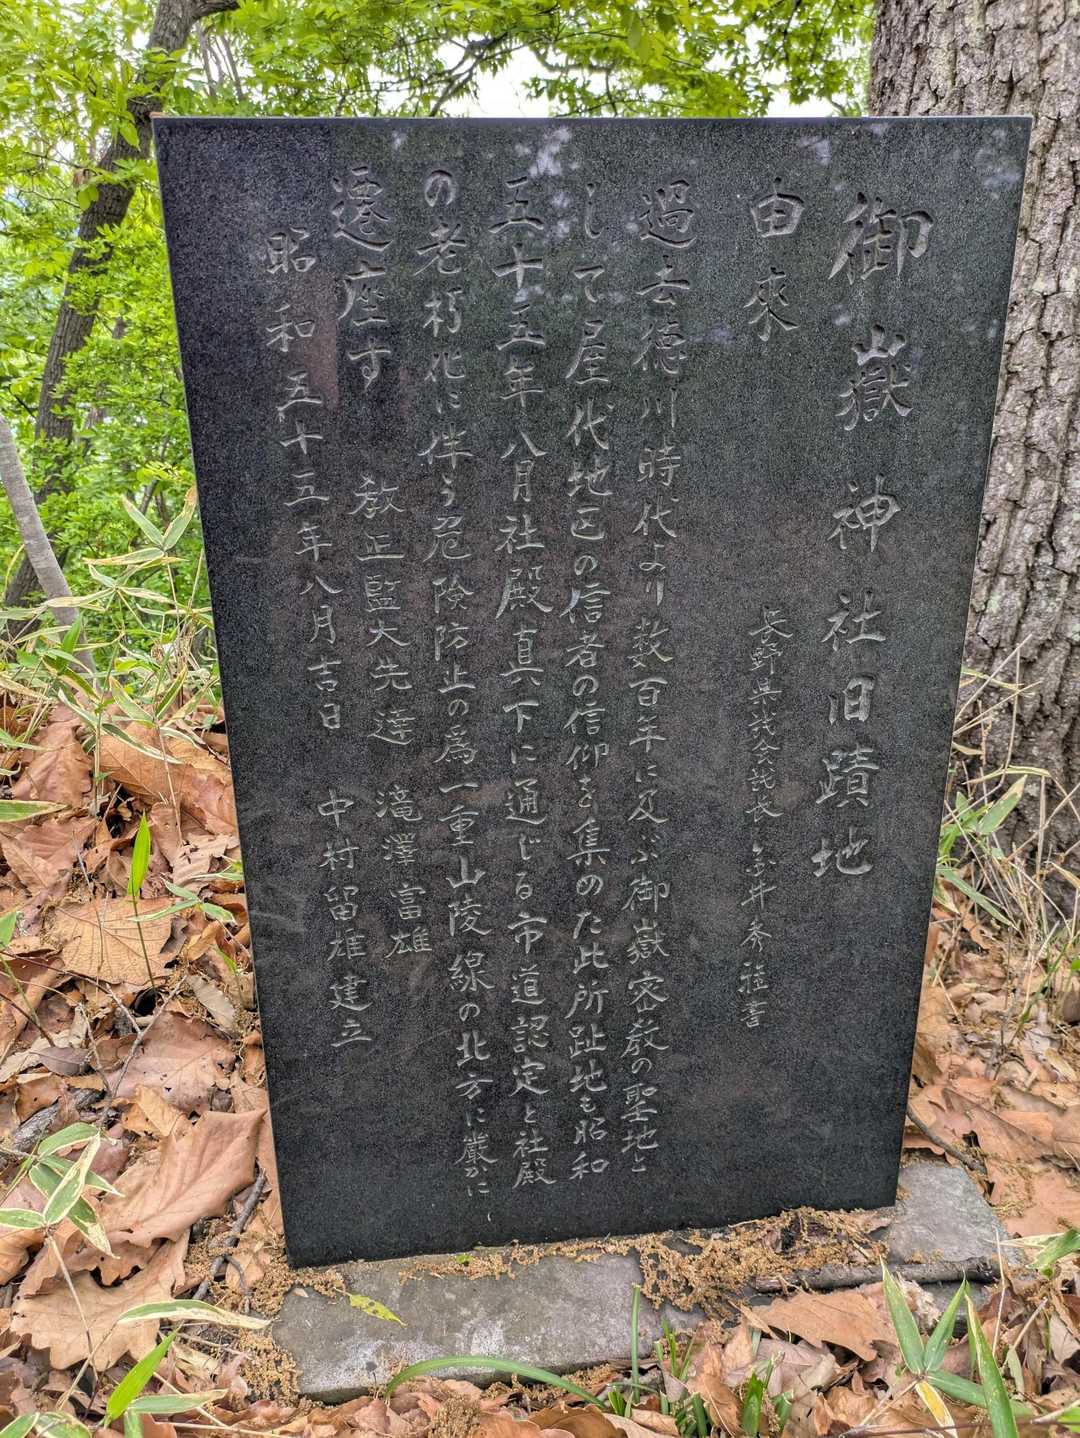 御嶽神社旧蹟地
由来
長野県議会議長 金井秀雄書
過去徳川時代より数百年に及ぶ御嶽密教の聖地と
して屋代地区の信者の信仰を集めた此所趾地も昭和
五十五年八月社殿真下に通じる市道認定と社殿
の老朽化に伴う危険防止の為一重山陵線の北方に厳かに
遷座す 教正監大先達 滝澤富雄
昭和五十五年八月吉日 中村留雄建立